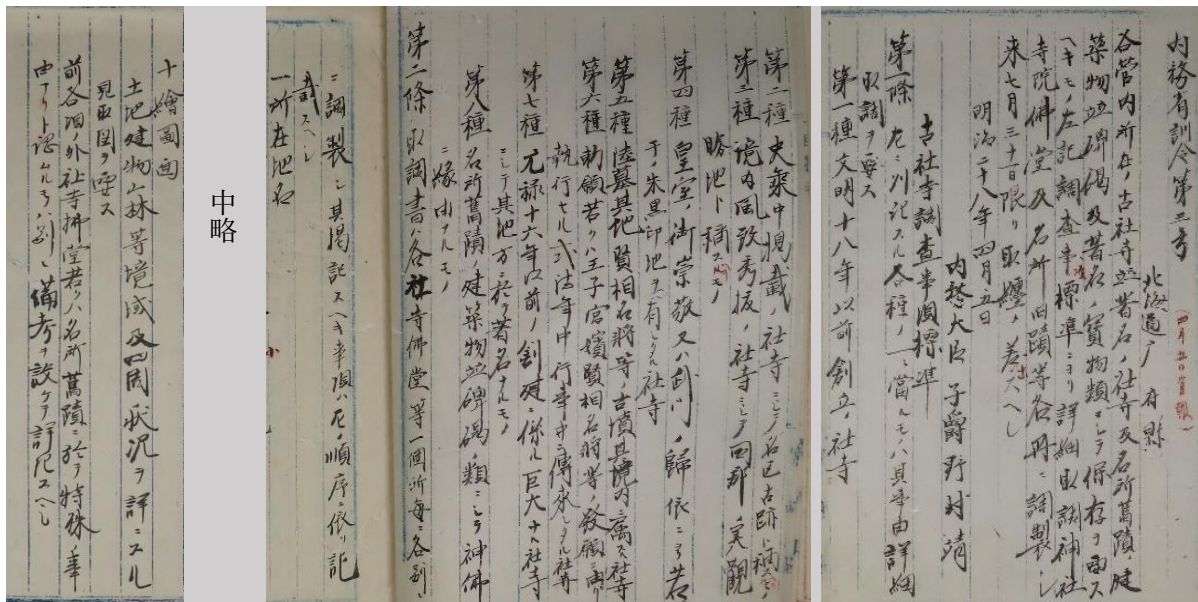 内務省訓令第三号
(四月五日官報)
北海道庁 府縣
各管内所在ノ古社寺並著名ノ社寺及名所舊蹟建
築物並碑碣及著名ノ寳物類ニシテ保存ヲ要ス
ヘキモノ左記調査事項標準ニヨリ詳細取調神社
寺院佛堂及名所旧蹟等各冊ニ調製シ
来七月三十一日限リ取纏メ差出スヘシ
明治二十八年四月五日
内務大臣 子爵野村靖
古社寺調査事項標準
第一條 左ニ列記スル各種ノ一ニ當ルモノハ其事由詳細
取調ヲ要ス
第一種 文明十八年以前創立ノ社寺
第二種 史乘中掲載ノ社寺ニシテ名區古跡ト稱スルモノ
第三種 境内風致秀拔ノ社寺ニシテ四郡ノ美觀
勝地ト稱スルモノ
第四種 皇室ノ御崇敬又ハ武門ノ歸依ニヨリ若
干ノ朱黒印地ヲ有シタル社寺
第五種 陵墓其他賢相名將等ノ古墳其境内ニ寓ス社寺
第六種 勅願若クハ王子官嬪賢相名將等ノ發願ニ由リ
執行セル式法年中行事等傳來シタル社寺
第七種 元禄十六年以前ノ創建ニ係ル巨大ナル社寺
ニシテ其地方ニ於テ著名ナルモノ
第八種 名所舊蹟ノ建築物並碑碣ノ類ニシテ神佛
ニ縁由アルモノ
第二條 取調書ハ各社寺佛堂等一個所毎ニ各別ニ
ニ調製シ其掲記スヘキ事項ハ左ノ順序ニ依リ記
載スヘシ
一所在地名
中略
十繪圖面
土地建物山林等境域及四周状況ヲ詳ニスル
見取図ヲ要ス
前各項ノ外社寺佛堂若クハ名所舊蹟ニ於テ特殊ノ事
由アリト認ムルモノハ別ニ備考ヲ設ケテ詳記スヘシ